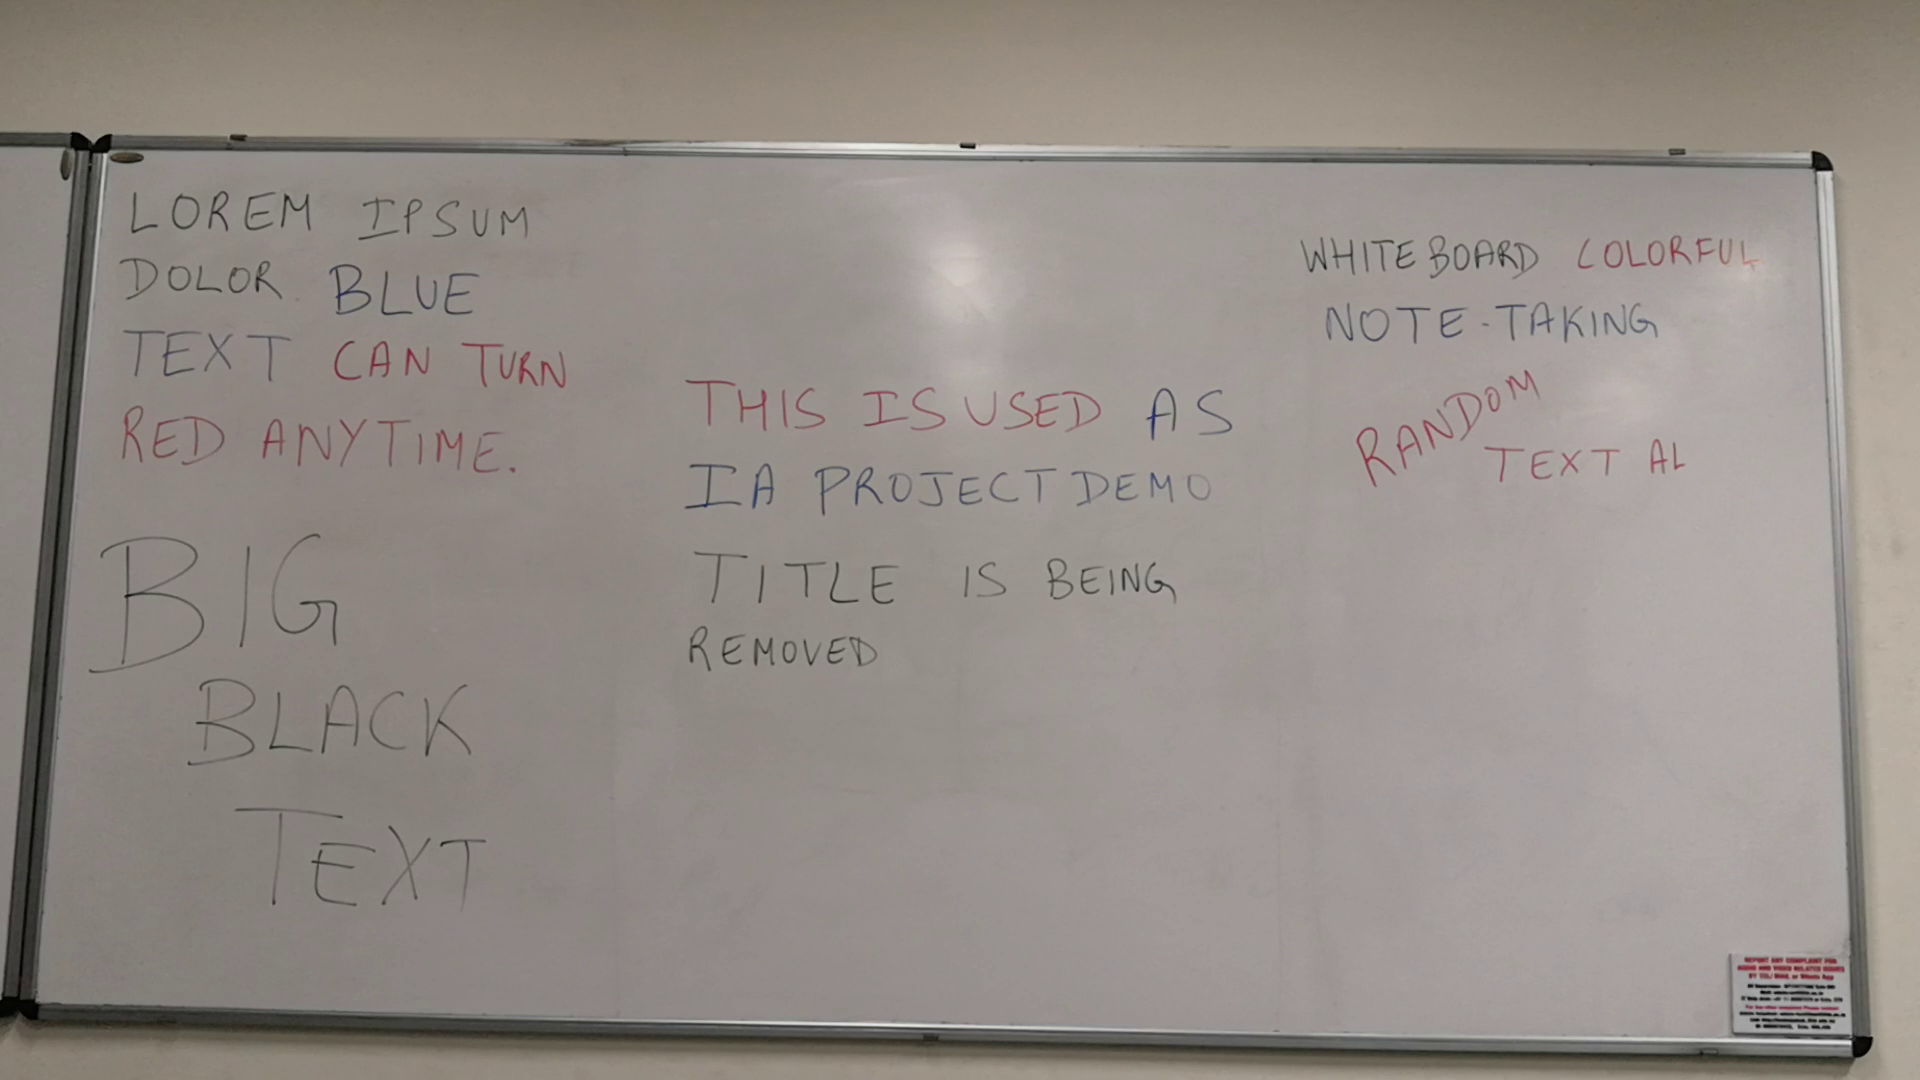 LOREM IPSUM
DOLOR BLUE
TEXT CAN TURN
RED ANYTIME.
BIG
BLACK
TEXT
THIS IS USED AS
IA PROJECT DEMO
TITLE IS BEING
REMOVED
WHITEBOARD COLORFUL
NOTE-TAKING
RANDOM
TEXT AL
REPORT ANY COMPLAINT FOR
AUDIO AND VIDEO RELATED ISSUES